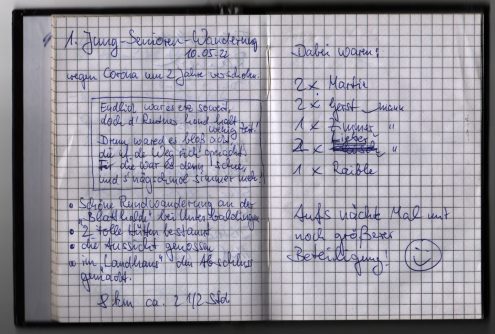 1. Jung-Senioren-Wanderung
10.05.22
wegen Corona um 2 Jahre verschoben.
Endlich war es etz soweit,
doch d' Rentner hond halt
wenig Zeit!
Drum wared es bloß
die uf de Weg sich gmacht.
Für die war es denn schee,
und s'nägschmol simmer meh!
• Schöne Rundwanderung an der
"Blatthalde" bei Unterbaldingen
• 2 tolle Hütten bestaunt
• die Aussicht genossen
• im "Landhaus" den Abschluss
gemacht.
8 km ca. 2 1/2 Std
Dabei waren:
2 x Martin
2 x Gerst mann
1 x Zimmer "
2 x Lieber "
1 x Raible
Aufs nächste Mal mit
noch größerer
Beteiligung!